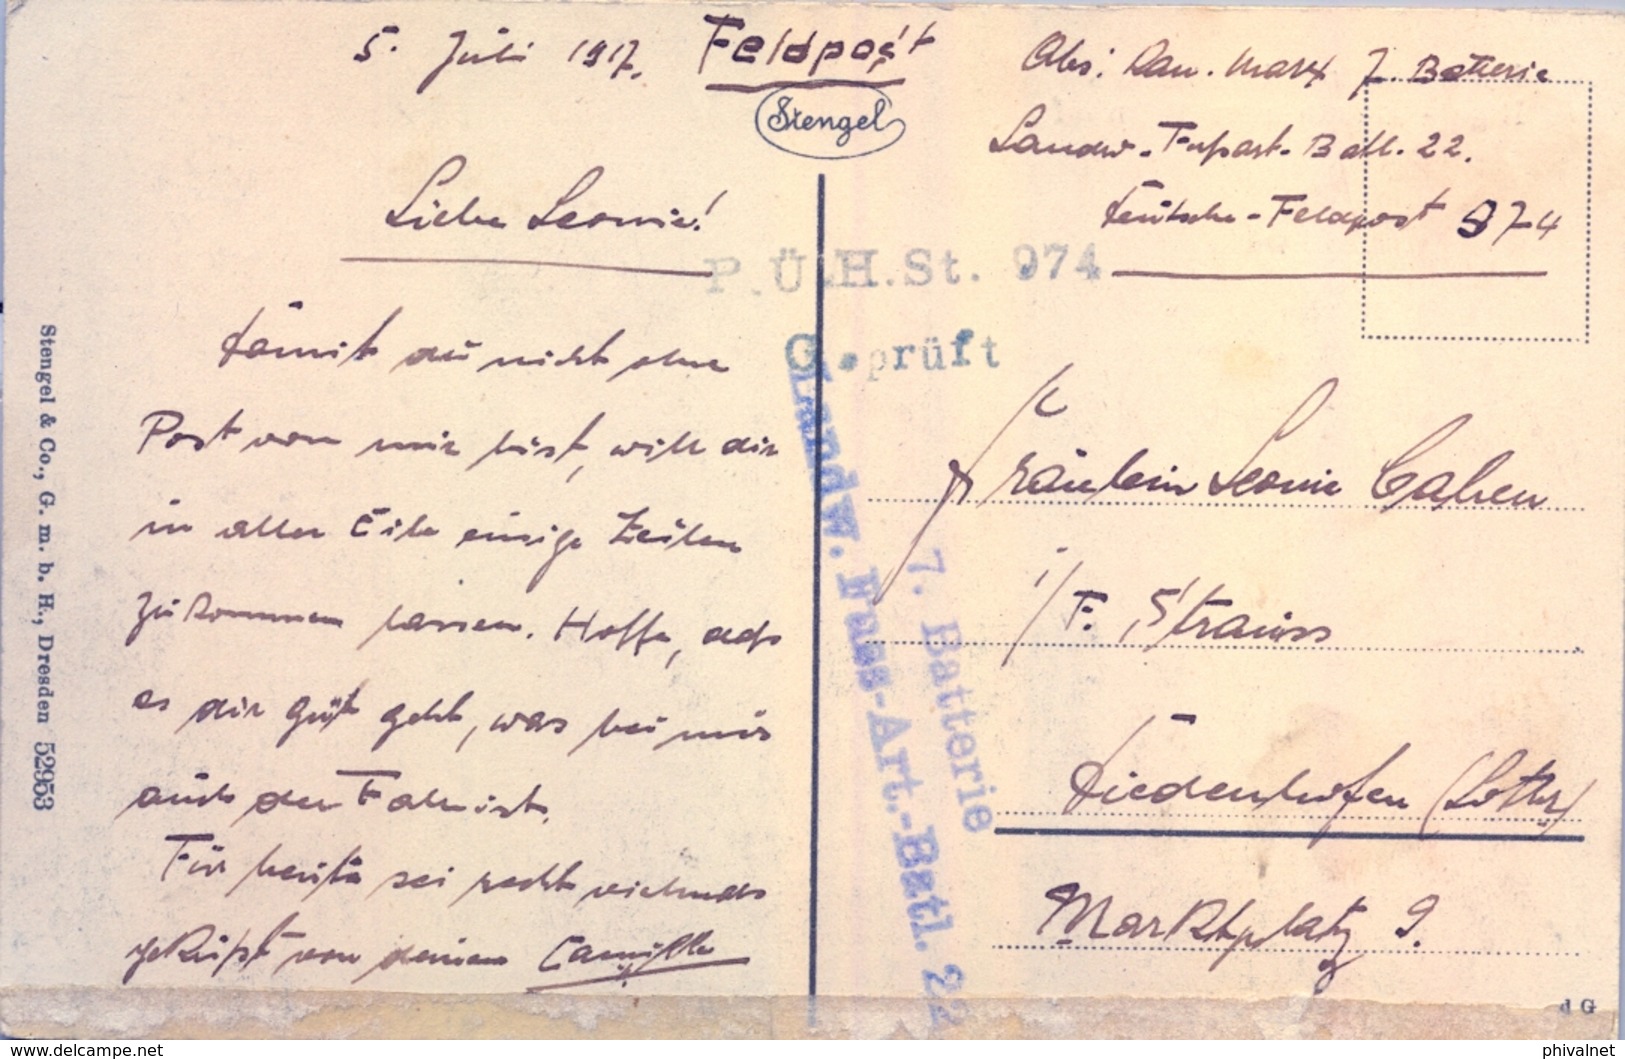 5. Juli 1917. Feldpost
Stengel
Abs: Kan. Marx 7. Batterie
Landw.-Fußart.-Batl. 22.
Deutsche-Feldpost 974
Liebe Leonie!
P.Ü.H.St. 974
Geprüft
Damit du nicht ohne
Post von mir bist, will dir
in aller Eile einige Zeilen
zukommen lassen. Hoffe, daß
es dir gut geht, was bei mir
auch der Fall ist.
Für heute sei recht vielmals
geküßt von deinem Camille
Landw. Fuss-Art.-Batl. 22
7. Batterie
Fräulein Leonie Cahen
i/ F. Strauss
Diedenhofen (Lothr)
Marktplatz 9.
Stengel & Co., G. m. b. H., Dresden 52953
d G
www.delcampe.net
phivalnet